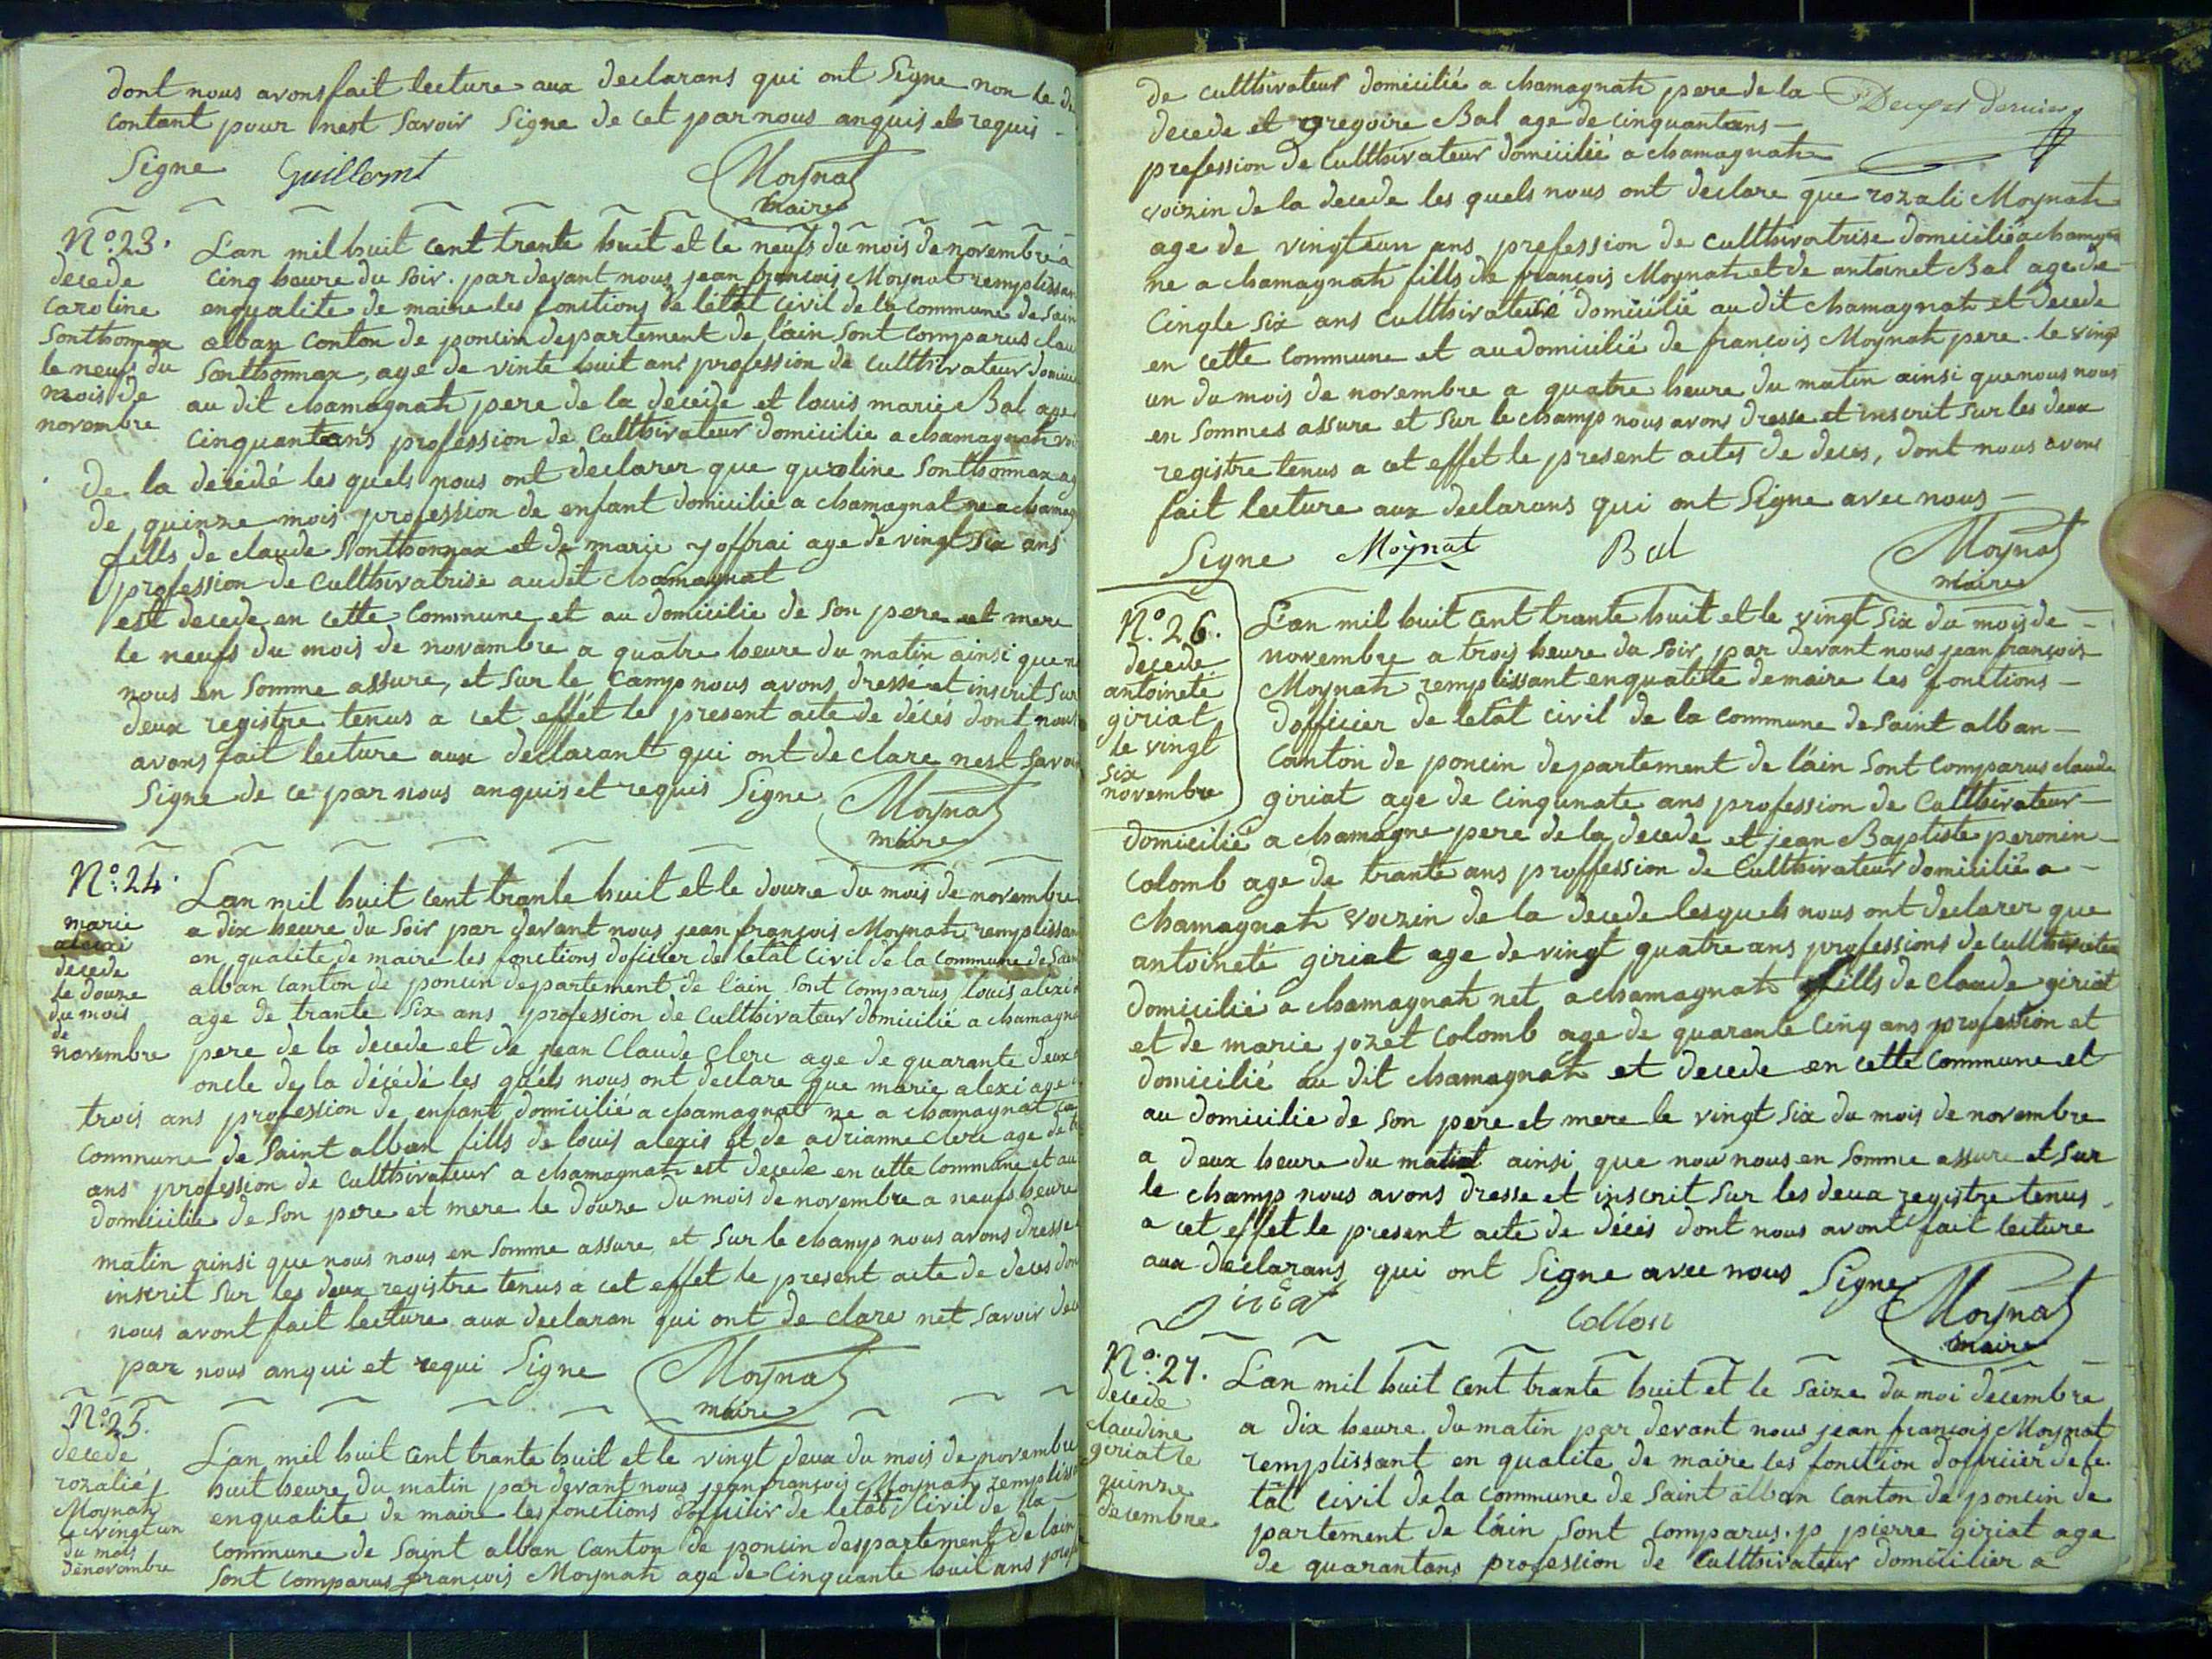 dont nous avons fait lecture aux declarans qui ont Signe non le de
contant pour nest Savoir Signe de cet par nous anquis et requis -
Signe Guillermt Moynat
maire
N°.23.
decede
caroline
Sonthonnax
le neufs du
mois de
novembre
L'an mil huit cent trante huit et le neufs du mois de novembre a
cinq heure du Soir. par devant nous jean francois Moynat remplissan
enqualite de maire les fonctions de letat civil de la commune de Sain
alban Conton de poncin departement de l'ain Sont comparus clau
Sonthonnax, age de vinte huit ans profession de cultthivateur domici
au dit chamagnath pere de la décéde et louis marie Bal age
cinquantans profession de Cultthivateur domicilie a chamagnath voi
de la décédé les quels nous ont declarer que quroline Sonthonnax ag
de quinze mois profession de enfant domicilie a chamagnat ne a chamag
fills de claude Sonthonnax et de marie joffrai age de vingt Six ans
profession de Cultthivatrise audit chamagnat
est decede en cette Commune et au domicilie de Son pere et mere
le neufs du mois de novambre a quatre heure du matin ainsi que n
nous en Somme assure, et Sur le Camp nous avons dresse et inscrit Sur
deux registre tenus a cet effét le present acte de décés dont nous
avons fait lecture aux declarant qui ont de clare nest Savoi
Signe de ce par nous anquis et requis Signe Moynat
maire
N°.24.
marie
alexi
decede
le douze
du mois
de
novembre
Lan mil huit cent trante huit et le douze du mois de novembre
a dix heure du Soir par devant nous jean françois Moynath remplissan
en qualite de maire les fonctions doficier de letat Civil de la Commune de Sain
alban Canton de poncin departement de lain Sont comparus louis alexi
age de trante Six ans profession de cultthivateur domicilié a chamagna
pere de la decede et de jean Claude Clerc age de quarante deux
oncle de la décédé les quels nous ont declare que marie alexi age
trois ans profession de enfant domicilié a chamagnat ne a chamagnat
Commune de Saint alban fills de louis alexis et de adrianne clerc age de
ans profession de Cultthivateur a chamagnath est decede en cette Commune et au
domicilie de Son pere et mere le douze du mois de novembre a neufs heure
matin ainsi que nous nous en Somme assure et Sur le champ nous avons dresse
inscrit Sur les deux registre tenus a cet effet le present acte de deces don
nous avont fait lecture aux declaran qui ont de clare net Savoir de
par nous anqui et requi Signe Moynat
maire
N°.25.
decede
rozalié
Moynath
le vingt un
du mois
denovembre
L'an mil huit cent trante huit et le vingt deux du mois de novembre
huit heure du matin par devant nous jean françois Moynath remplissa
enqualite de maire les fonctions d'officiir de letat Civil de la
commune de Saint alban Canton de poncin despartement de lain
Sont comparus françois Moynath age de Cinquante huit ans profe
de cultthivateur domicilié a chamagnath pere de la
decede et gregoire Bal age de cinquantans -
profession de Cultthivateur domicilié a chamagnath
voizin de la decede les quels nous ont declare que rozali Moynath
age de vingteun ans profession de cultthivatrise domicilié a chamgna
ne a chamagnath fills de françois Moynath et de antoinet Bal age de
Cingle Six ans Cultthivateure domicilié au dit chamagnath et decede
en cette Commune et au domicilié de françois Moynath pere. le vingt
un du mois de novembre a quatre heure du matin ainsi que nous nous
en Sommes assure et Sur le champ nous avons dresse et inscrit Sur les deux
registre tenus a cet effet le present actes de deces, dont nous avons
fait lecture aux declarans qui ont Signe avec nous -
Signe Moynat Bal Moynat
maire
N°.26.
decede
antoineté
giriat
le vingt
six
novembre
L'an mil huit cent trante huit et le vingt Six du mois de -
novembre a trois heure du Soir, par devant nous jean françois
Moynath remplissant enqualite de maire les fonctions -
dofficier de letat civil de la Commune de Saint alban -
Canton de poncin departement de láin Sont Comparus claude
giriat age de Cinqunate ans profession de Cultthivateur -
domicilié a chamagne pere de la decede et jean Baptiste peronin -
Colomb age de trante ans proffession de Cultthivateur domicilié a -
chamagnath voizin de la decede lesquels nous ont declarer que
antoineté giriat age de vingt quatre ans professions de cultthivateu
domicilié a chamagnath net a chamagnath fills de Claude giriat
et de marie jozet Colomb age de quarante Cinq ans profession et
domicilié au dit chamagnath et decede en cette commune et
au domicilie de Son pere et mere le vingt Six du mois de novembre
a deux heure du matint ainsi que nou nous en Somme assure et Sur
le champ nous avons dresse et inscrit Sur les deux registre tenus
a cet effet le present acte de décés dont nous avont fait lecture
aux declarans qui ont Signe avec nous Signe Moynat
maire
N°.27.
decede
claudine
giriat le
quinze
decembre
L'an mil huit cent trante huit et le Saize du moi decembre
a dix heure du matin par devant nous jean françois Moynat
remplissant en qualite de maire les fonction dofficiir de le
tat civil de la commune de Saint alban Canton de poncin de
partement de láin Sont comparus. p pierre giriat age
de quarantans profession de Cultthivateur domicilier a